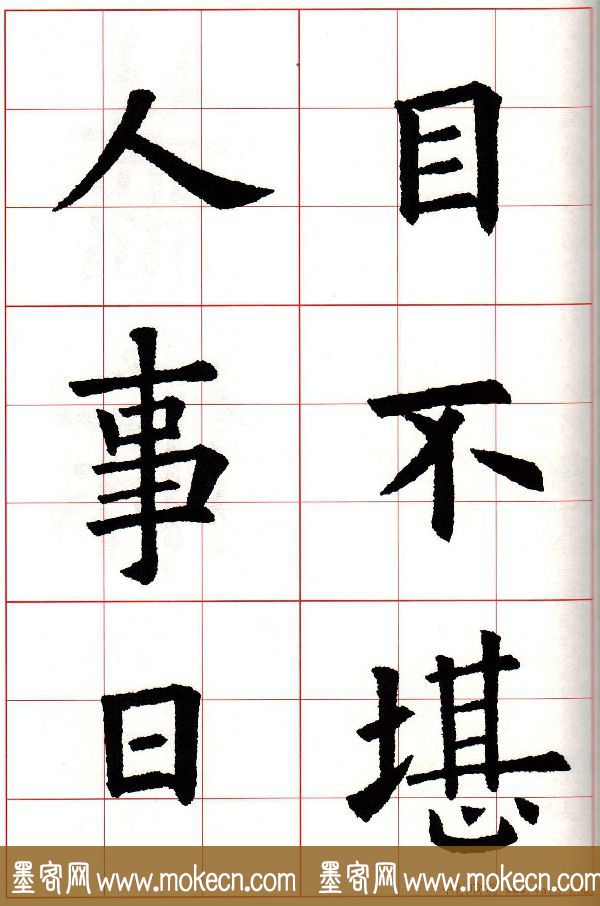 目不堪
人事日
墨客网 www.mokecn.com 墨客网 www.mokecn.com